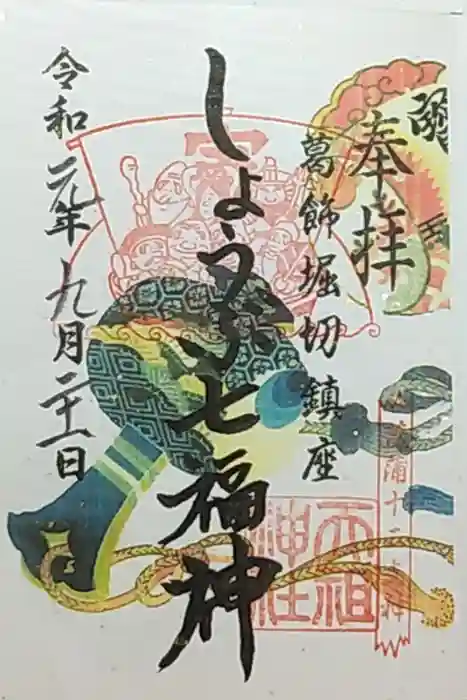 奉拝
葛飾堀切鎮座
しょうぶ七福神
令和元年九月二十一日
天祖神社